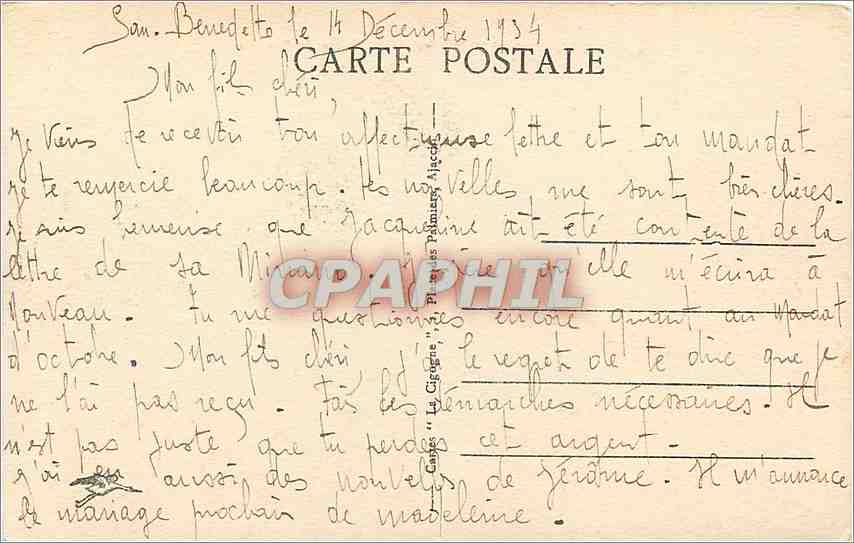 San. Benedetto le 14 Décembre 1934
CARTE POSTALE
Mon fils chéri,
je viens de recevoir ton affectueuse lettre et ton mandat
je te remercie beaucoup. tes nouvelles me sont très chères.
je suis heureuse que Jacqueline ait été contente de la
lettre de sa Miniano. J'espère qu'elle m'écrira à
nouveau. Tu me questionnes encore quant au Mandat
d'octobre. Mon fils chéri, j'ai le regret de te dire que je
ne l'ai pas reçu. Fais les démarches nécessaires. Il
n'est pas juste que tu perdes cet argent.
j'ai eu aussi des nouvelles de Jérôme. Il m'annonce
le mariage prochain de madeleine.
Cartes " La Cigogne ", Place des Palmiers, Ajaccio
CPAPHIL